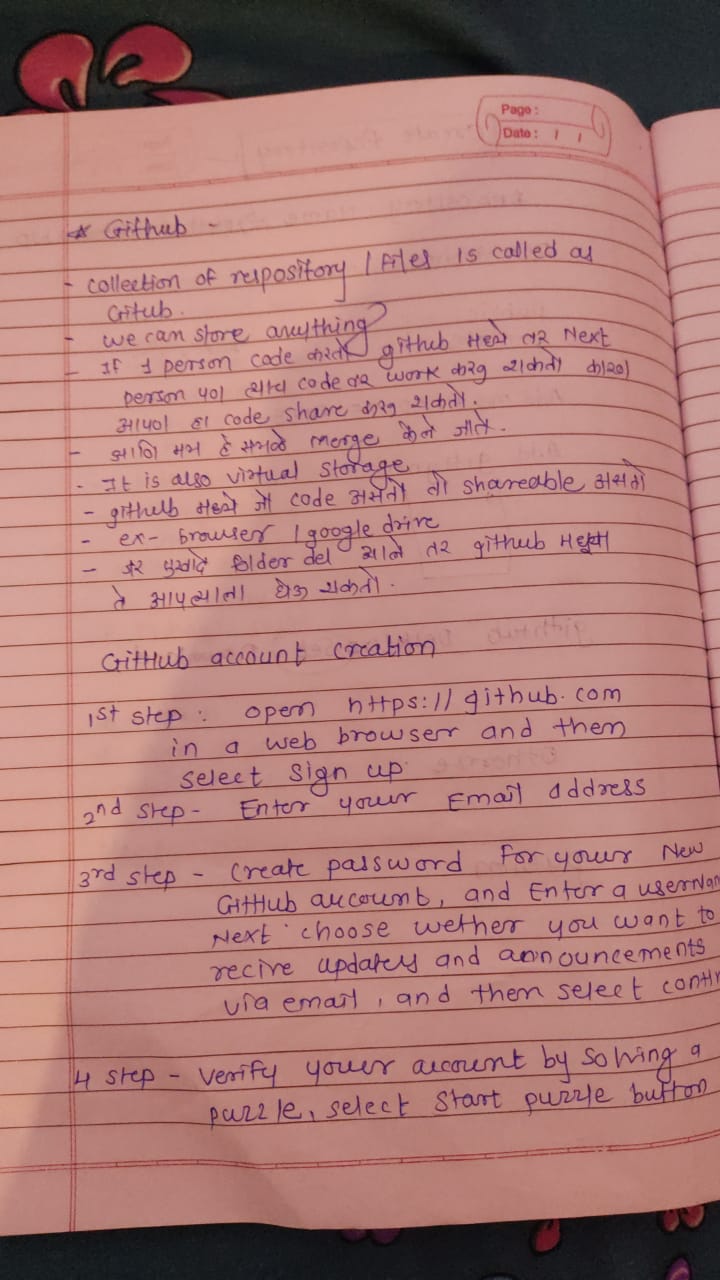 Page :
Date : / /
* Github -
- collection of respository / files is called as
Gitub.
- we can store anything
- If 1 person code करतो github मध्ये तर Next
person पण त्याच code वर work करु शकतो कारण
आपण हा code share करू शकतो.
- आणि मग हे सगळे merge केले जाते.
- It is also virtual storage
- github मध्ये जो code असतो तो shareable असतो
- ex- browser / google drive
- जर एखादे folder del झाले तर github मधून
ते आपल्याला घेऊ शकतो.
GitHub account creation
1st step : open https://github.com
in a web browser and then
select sign up
2nd step - Enter your Email address
3rd step - Create password For your New
GitHub account, and Enter a userNam
Next choose wether you want to
recive updates and announcements
via email, and then select contin
4 step - Verify your account by solving a
puzzle, select start puzzle button